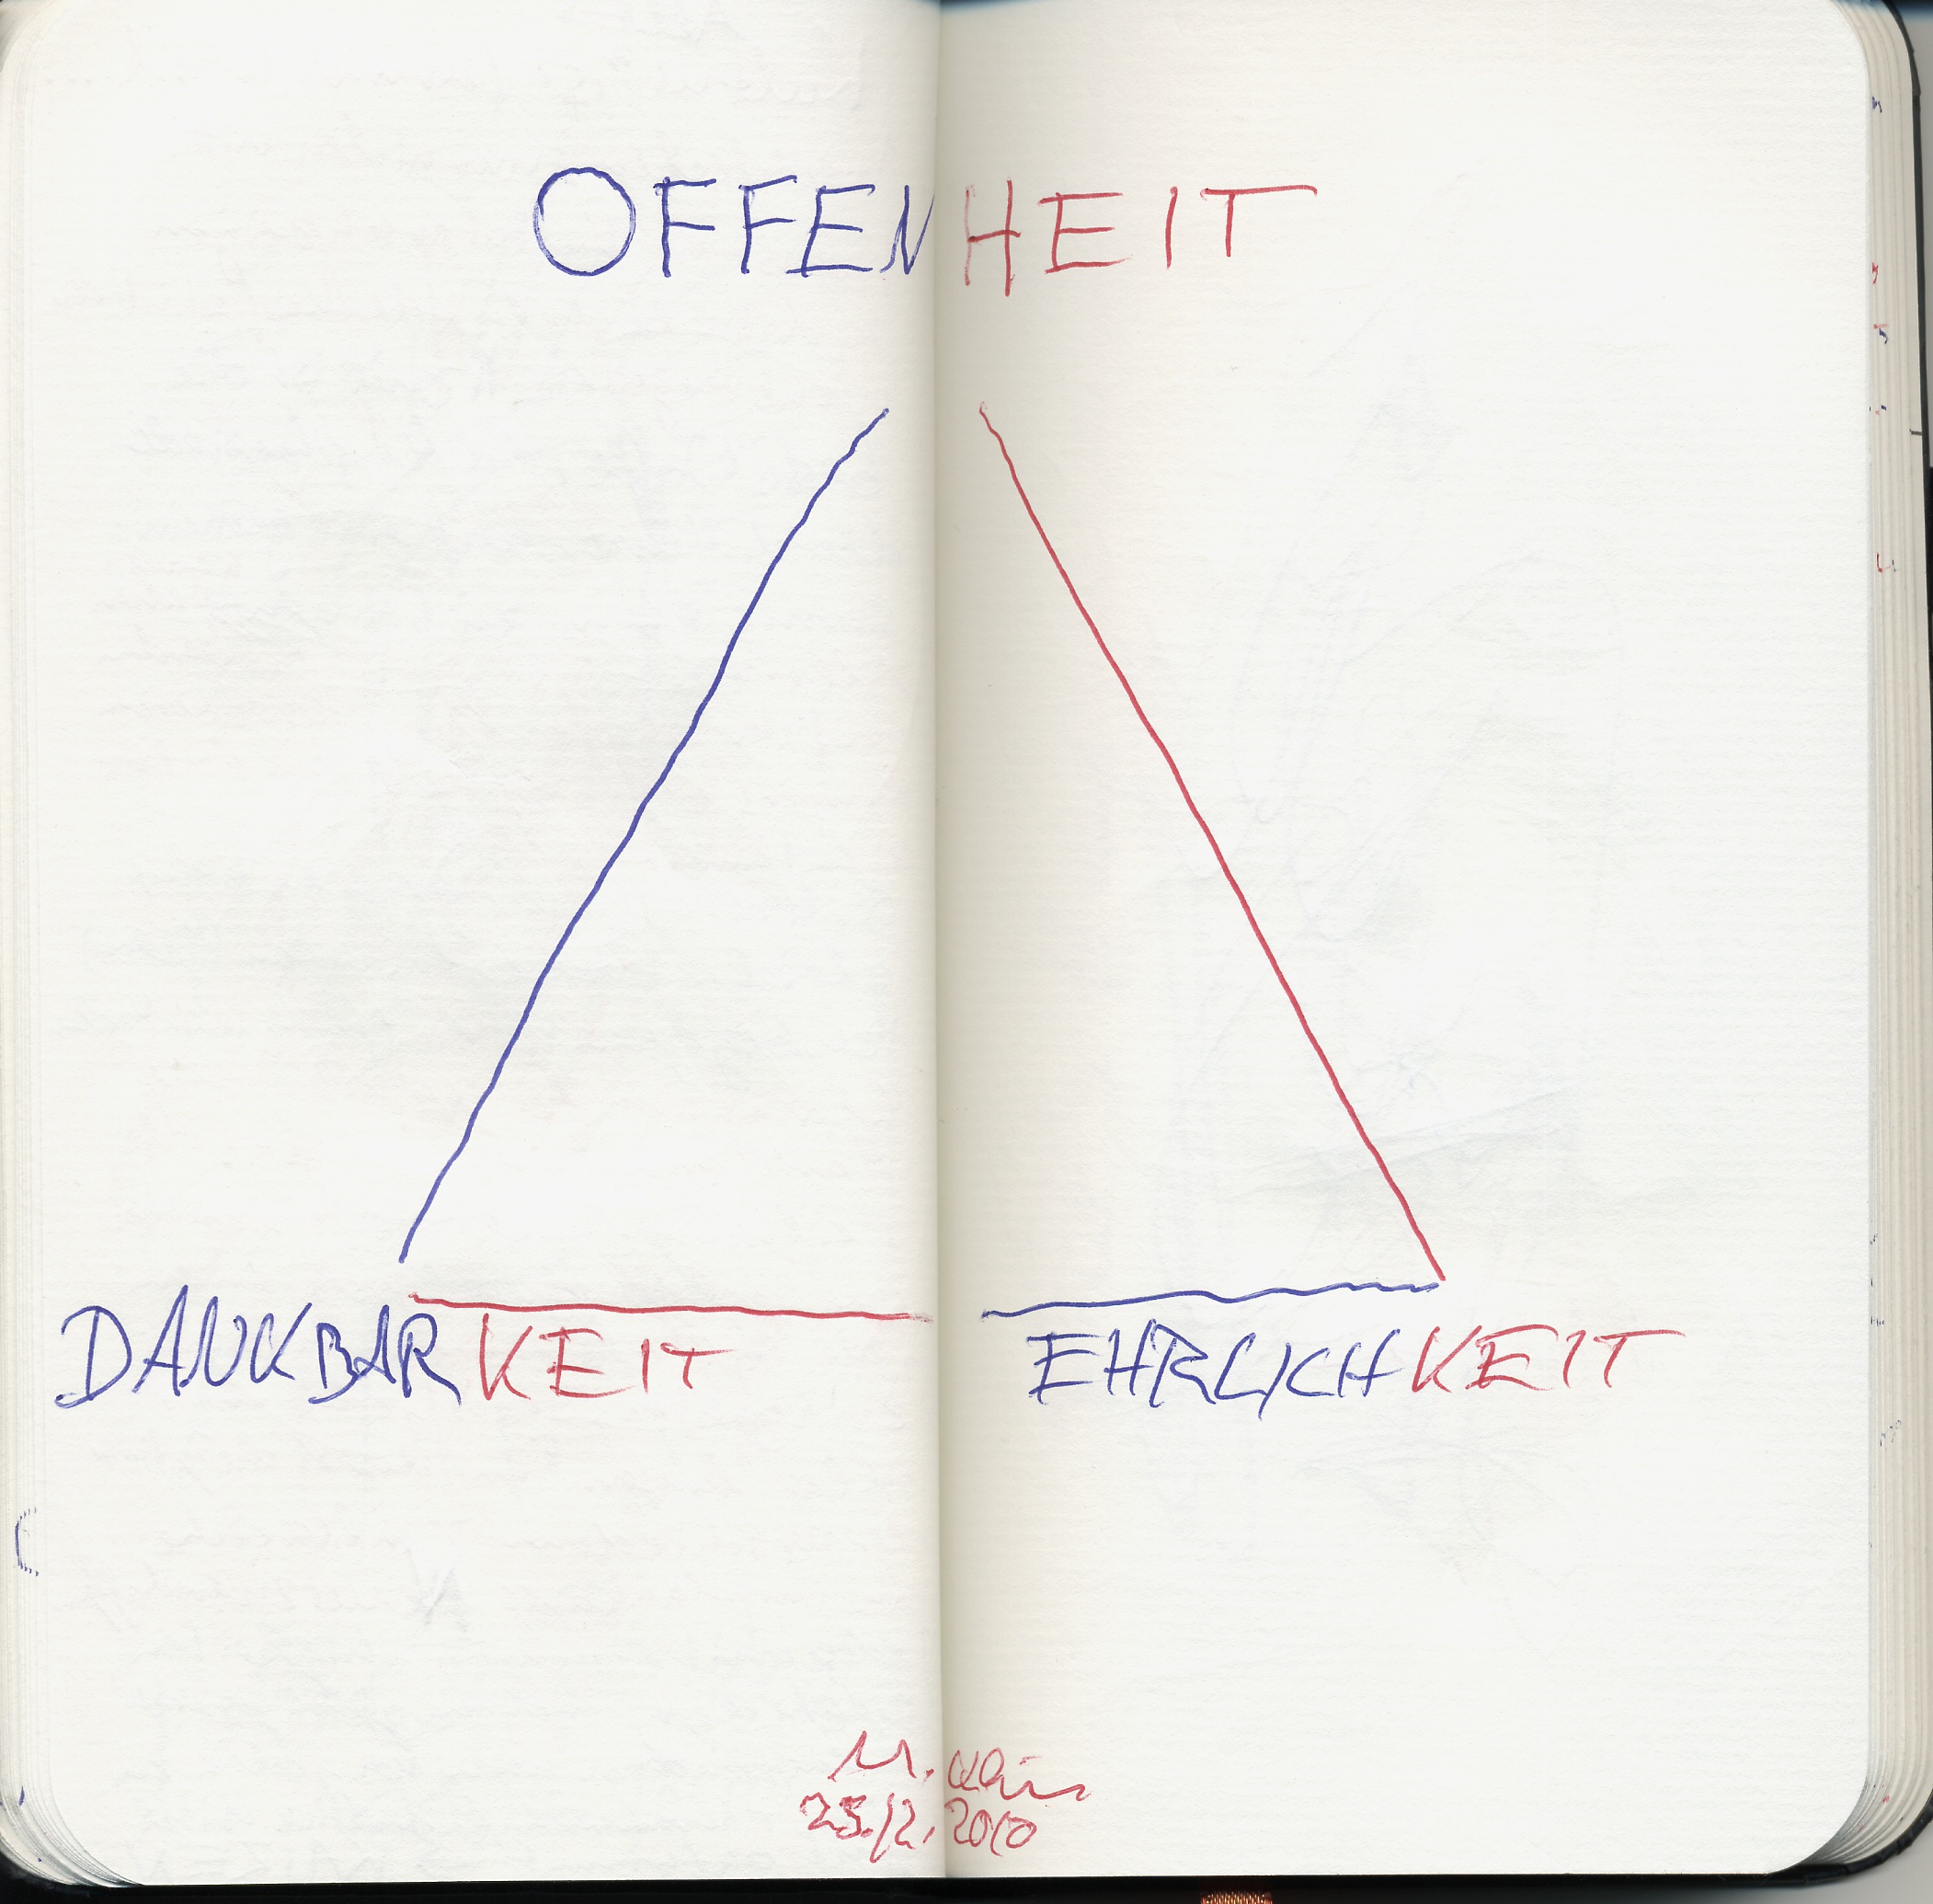 OFFENHEIT
DANKBARKEIT EHRLICHKEIT
M. Klein
25.12.2010